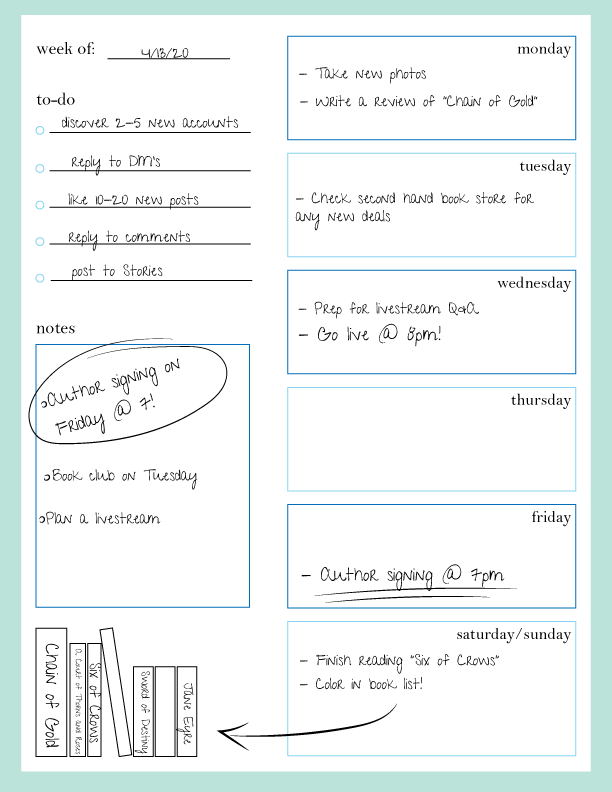 week of: 4/13/20
to-do
discover 2-5 new accounts
reply to DM's
like 10-20 new posts
reply to comments
post to Stories
notes
Author signing on
Friday @ 7!
Book club on Tuesday
Plan a livestream
Chain of Gold
A Court of Thorns and Roses
Six of Crows
Sword of Destiny
Jane Eyre
monday
- Take new photos
- Write a review of "Chain of Gold"
tuesday
- Check second hand book store for
any new deals
wednesday
- Prep for livestream Q&A
- Go live @ 8pm!
thursday
friday
- Author signing @ 7pm
saturday/sunday
- Finish reading "Six of Crows"
- Color in book list!